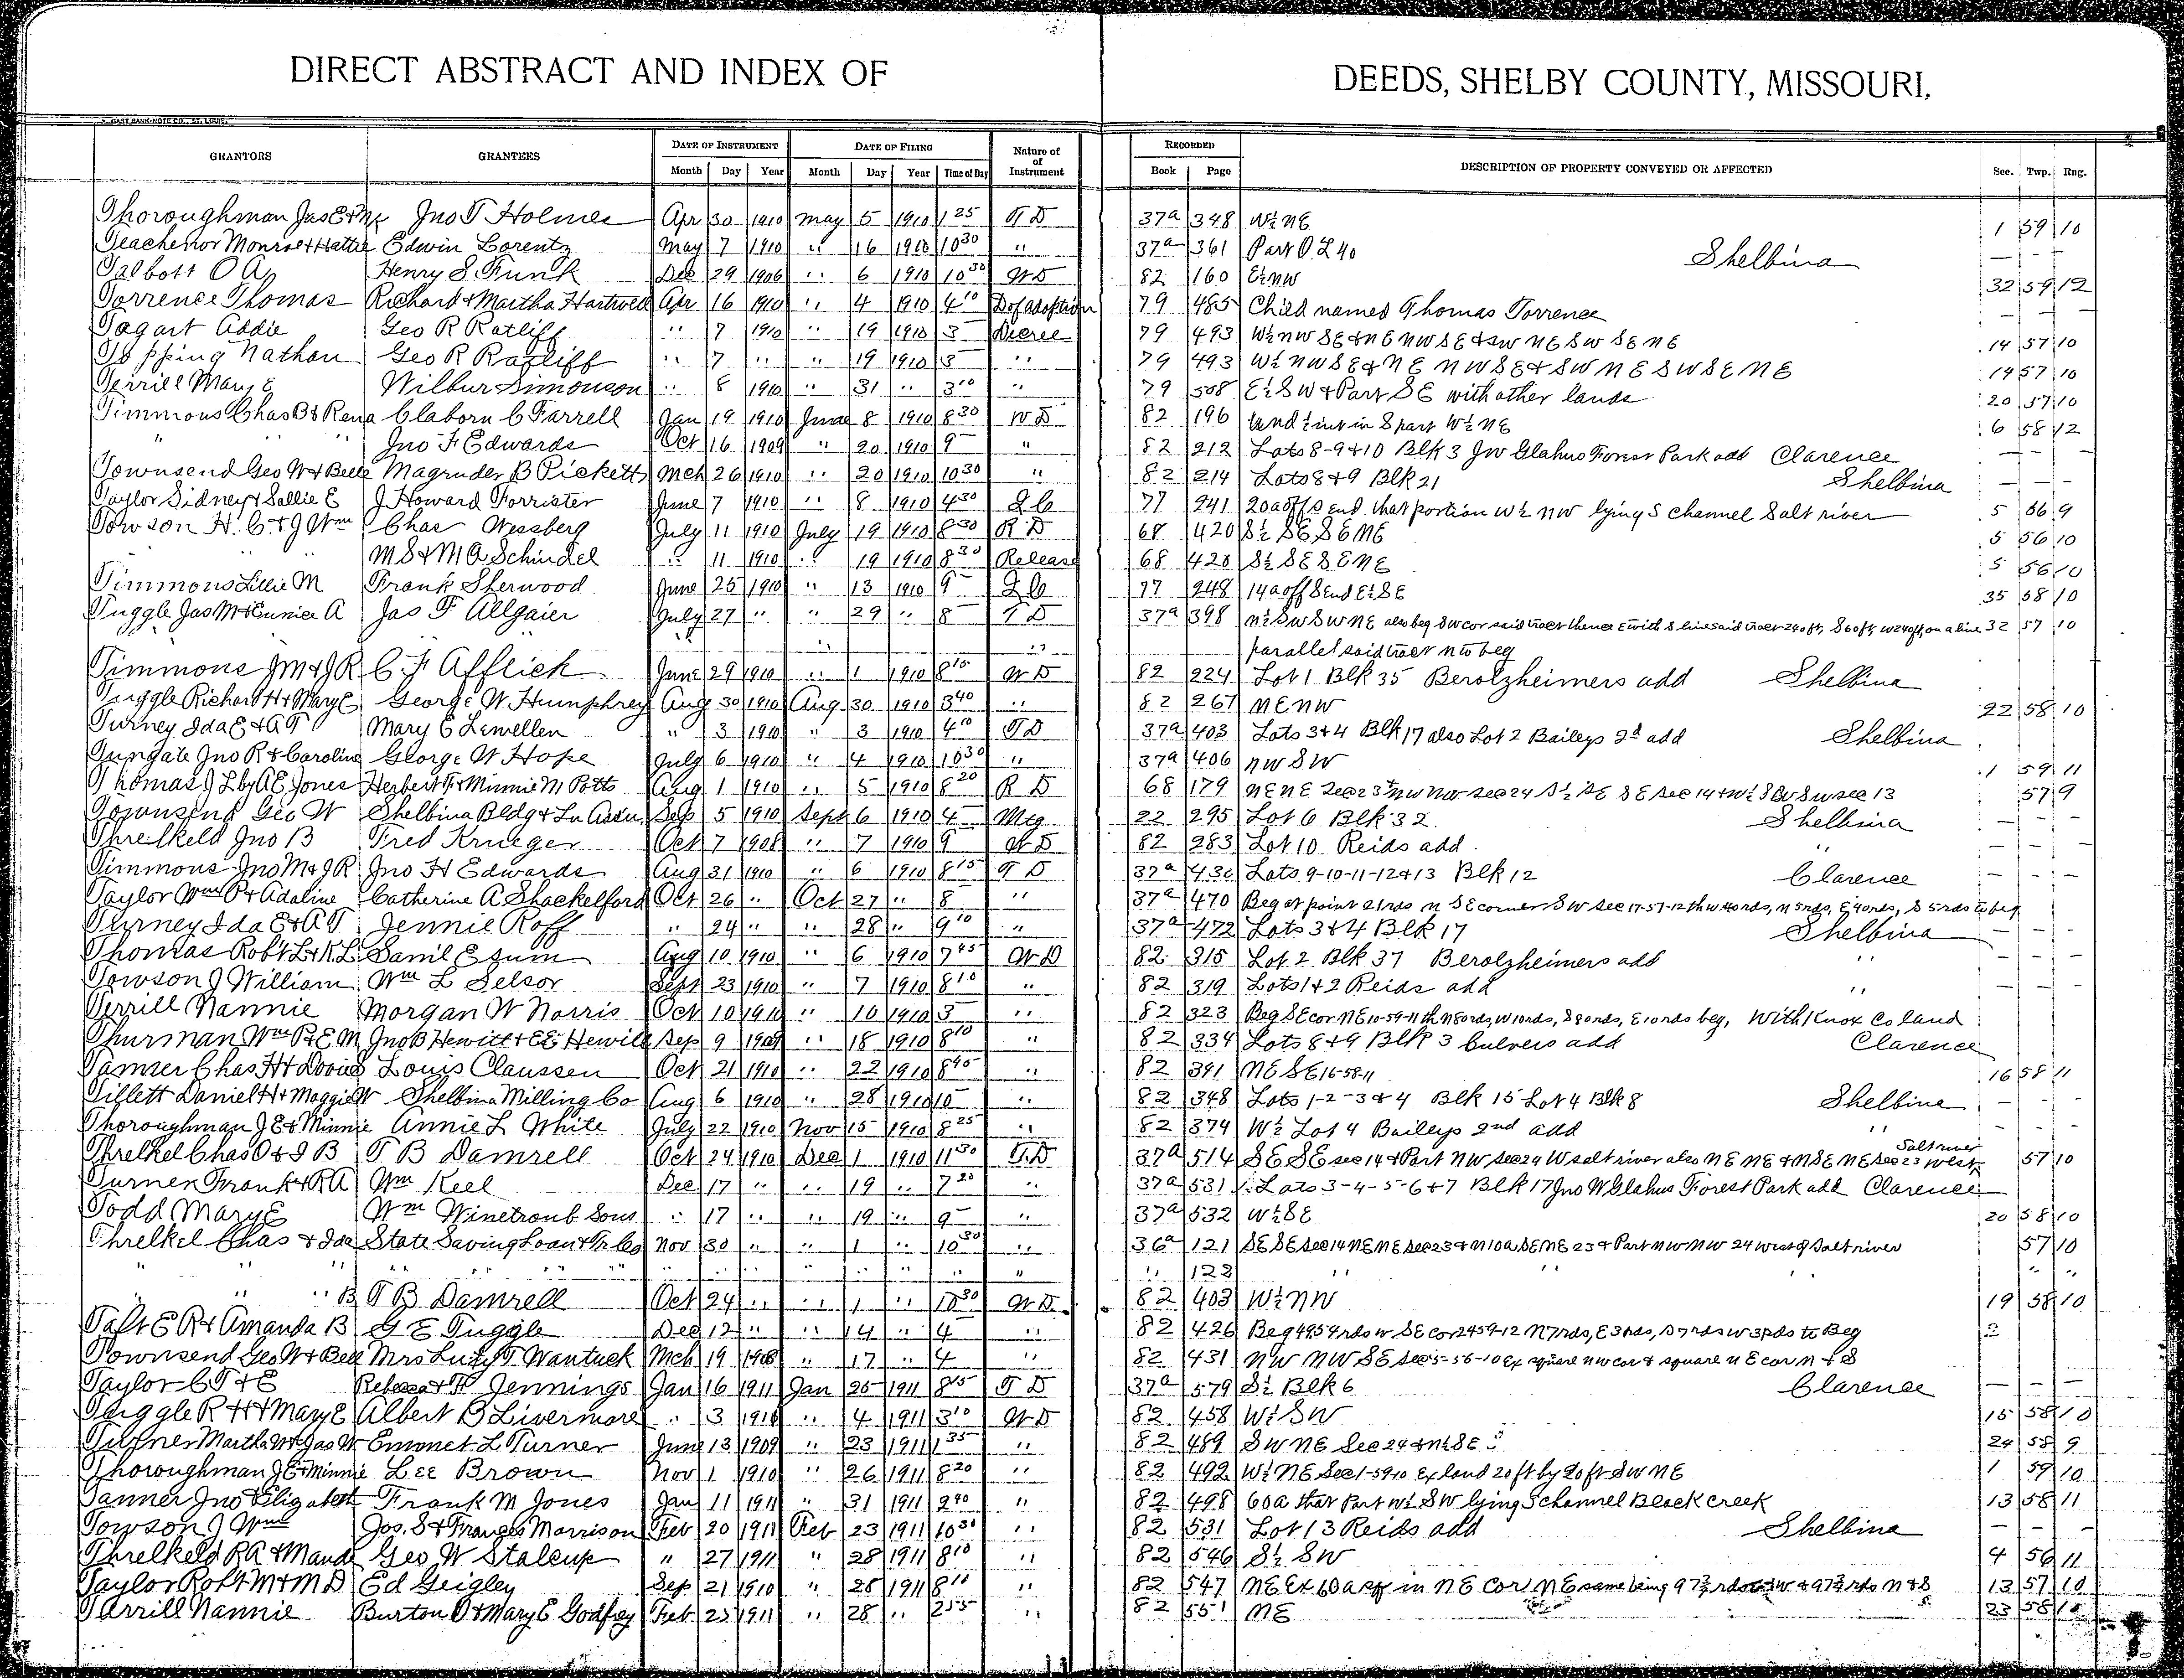 DIRECT ABSTRACT AND INDEX OF DEEDS, SHELBY COUNTY, MISSOURI.
GAST BANK NOTE CO., ST. LOUIS.
GRANTORS GRANTEES DATE OF INSTRUMENT DATE OF FILING Nature of of Instrument RECORDED DESCRIPTION OF PROPERTY CONVEYED OR AFFECTED Sec. Twp. Rng.
Month Day Year Month Day Year Time of Day Book Page
Thoroughman Jas E & Mk Jno T Holmes Apr 30 1910 May 5 1910 1 25 T D 37a 348 W½ NE 1 59 10
Teachenor Monroe & Hattie Edwin Lorentz May 7 1910 " 16 1910 10 30 " 37a 361 Part O L 40 Shelbina — - -
Talbott O A Henry S. Funk Dec 29 1906 " 6 1910 10 30 W D 82 160 E½ NW 32 59 12
Torrence Thomas Richard & Martha Hartwell Apr 16 1910 " 4 1910 4 10 D of adoption 79 485 Child named Thomas Torrence — — —
Tagart Addie Geo R Ratliff " 7 1910 " 19 1910 3 — Decree 79 493 W½ NW SE & NE NW SE & SW NE SW SE NE 14 57 10
Topping Nathan Geo R Ratliff " 7 " " 19 1910 3 — " 79 493 W½ NW SE & NE NW SE & SW NE SW SE NE 14 57 10
Terrill Mary E Wilbur Simonson " 8 1910 " 31 " 3 10 " 79 508 E½ SW & Part SE with other lands 20 57 10
Timmons Chas B & Rena Claborn C Farrell Jan 19 1910 June 8 1910 8 30 W D 82 196 und ½ int in S part W½ NE 6 58 12
" " " Jno F Edwards Oct 16 1909 " 20 1910 9 — " 82 212 Lots 8-9 & 10 Blk 3 Jno Glahns Forest Park add Clarence — — —
Townsend Geo W & Belle Magruder B Picketts Mch 26 1910 " 20 1910 10 30 " 82 214 Lots 8 & 9 Blk 21 Shelbina — — —
Taylor Sidney & Sallie E J Howard Forrister June 7 1910 " 8 1910 4 30 Q C 77 241 20a off S end that portion W½ NW lying S channel Salt river 5 56 9
Towson H. C. & J Wm Chas Wessberg July 11 1910 July 19 1910 8 30 R D 68 420 S½ SE SE NE 5 56 10
M S & M A Schindel " 11 1910 " 19 1910 8 30 Release 68 420 S½ SE SE NE 5 56 10
Timmons Lillie M Frank Sherwood June 25 1910 " 13 1910 9 — Q C 77 248 14a off S end E½ SE 35 58 10
Tuggle Jas M & Eunice A Jas F Allgaier July 27 " " 29 " 8 — T D 37a 398 N½ SW SW NE also beg SW cor said tract thence E with S line said tract 240 ft, S 60 ft, W 240 ft, on a line 32 57 10
" " parallel said tract N to beg
Timmons J M & J R C F Afflick June 29 1910 " 1 1910 8 15 W D 82 224 Lot 1 Blk 35 Berolzheimers add Shelbina
Tuggle Richard H & Mary E George W. Humphrey Aug 30 1910 Aug 30 1910 3 40 " 82 267 NE NW 22 58 10
Turney Ida E & A T Mary E Lewellen " 3 1910 " 3 1910 4 10 T D 37a 403 Lots 3 & 4 Blk 17 also Lot 2 Baileys 2d add Shelbina
Tungate Jno R & Caroline George W Hope July 6 1910 " 4 1910 10 30 " 37a 406 NW SW 1 59 11
Thomas J L by A E Jones Herbert F & Minnie M Potts Aug 1 1910 " 5 1910 8 20 R D 68 179 NE NE Sec 23 & NW NW sec 24 S½ SE SE sec 14 & W½ SW SW sec 13 57 9
Townsend Geo W Shelbina Bldg & Ln Assn. Sep 5 1910 Sept 6 1910 4 — Mtg 22 295 Lot 6 Blk 32 Shelbina — — —
Threlkeld Jno B Fred Krueger Oct 7 1908 " 7 1910 9 W D 82 283 Lot 10 Reids add " — — —
Timmons Jno M & J R Jno H Edwards Aug 31 1910 " 6 1910 8 15 T D 37a 430 Lots 9-10-11-12 & 13 Blk 12 Clarence — — —
Taylor Wm P & Adaline Catherine A Shackelford Oct 26 " Oct 27 " 8 — " 37a 470 Beg at point 21 rds N SE corner SW sec 17-57-12 th W 40 rds, N 5 rds, E 40 rds, S 5 rds to beg.
Turney Ida E & A T Jennie Roff " 24 " " 28 " 9 10 " 37a 472 Lots 3 & 4 Blk 17 Shelbina — — —
Thomas Robt L & K L Saml Esum Aug 10 1910 " 6 1910 7 45 W D 82 315 Lot 2 Blk 37 Berolzheimers add " — — —
Towson J William Wm L Selsor Sept 23 1910 " 7 1910 8 10 " 82 319 Lots 1 & 2 Reids add " — — —
Terrill Nannie Morgan W Norris Oct 10 1910 " 10 1910 3 — " 82 323 Beg SE cor NE 10-59-11 th N 80 rds, W 10 rds, S 80 rds, E 10 rds beg, with Knox Co land
Thurman Wm P & E M Jno B Hewitt & E E Hewitt Sep 9 1909 " 18 1910 8 10 " 82 334 Lots 8 & 9 Blk 3 Culvers add Clarence
Tamser Chas H & Louis Claussen Oct 21 1910 " 22 1910 8 45 " 82 341 NE SE 16-58-11 16 58 11
Tillett Daniel H & Maggie W Shelbina Milling Co Aug 6 1910 " 28 1910 10 — " 82 348 Lots 1-2-3 & 4 Blk 15 Lot 4 Blk 8 Shelbina — — —
Thoroughman J E & Minnie Annie L White July 22 1910 Nov 15 1910 8 25 " 82 374 W½ Lot 4 Baileys 2nd add " — — —
Threlkel Chas O & I B T B Damrell Oct 24 1910 Dec 1 1910 11 30 T. D 37a 514 SE SE sec 14 & Part NW sec 24 W salt river also NE NE & N SE NE Sec 23 west Salt river 57 10
Turner Frank & R A Wm Keel Dec 17 " " 19 " 7 20 " 37a 531 Lots 3-4-5-6 & 7 Blk 17 Jno W Glahns Forest Park add Clarence
Todd Mary E Wm Winetroub Sons " 17 " " 19 " 9 — " 37a 532 W½ SE 20 58 10
Threlkel Chas & Ida State Saving Loan & Tr Co Nov 30 " " 1 " 10 30 " 36a 121 SE SE Sec 14 NE NE Sec 23 & N 10a SE NE 23 & Part NW NW 24 west of Salt river 57 10
" " " " " " " " " " " " " 122 " " " " "
" " " B T B Damrell Oct 24 " " 1 " 10 30 W D. 82 403 W½ NW 19 58 10
Taft E R & Amanda B G E Tuggle Dec 12 " " 14 " 4 — " 82 426 Beg 49 54 rds W SE cor 24 59-12 N 7 rds, E 3 rds, S 7 rds W 3 rds to Beg
Townsend Geo W & Bell Mrs Lucy T Wantuck Mch 19 1908 " 17 " 4 " 82 431 NW NW SE Sec 5-56-10 Ex square NW cor & square N E cor N & S
Taylor C T & E Rebecca & F Jennings Jan 16 1911 Jan 25 1911 8 15 T D 37a 579 S½ Blk 6 Clarence — — —
Tuggle R H & Mary E Albert B Livermore " 3 1910 " 4 1911 3 10 W D 82 458 W½ SW 15 58 10
Turner Martha W & Jas W Emonet L Turner June 13 1909 " 23 1911 1 35 " 82 489 SW NE Sec 24 & N½ SE 24 58 9
Thoroughman J E & Minnie Lee Brown Nov 1 1910 " 26 1911 8 20 " 82 492 W½ NE Sec 1-59-10 Ex land 20 ft by 20 ft SW NE 1 59 10
Tanner Jno & Elizabeth Frank M Jones Jan 11 1911 " 31 1911 2 40 " 82 498 60a that Part W½ SW lying S channel Black creek 13 58 11
Towson J Wm Jos. S & Frances Morrison Feb 20 1911 Feb 23 1911 10 30 " 82 531 Lot 13 Reids add Shelbina — — -
Threlkeld R A & Maude Geo W Stalcup " 27 1911 " 28 1911 8 10 " 82 546 S½ SW 4 56 11
Taylor Robt M & M D Ed Geigley Sep 21 1910 " 28 1911 8 10 " 82 547 NE Ex 60a sq in NE Cor NE same being 97¾ rds W & 97¾ rds N & S 13 57 10
Terrill Nannie Burton O & Mary E Godfrey Feb 25 1911 " 28 " 2 55 " 82 551 NE 23 58